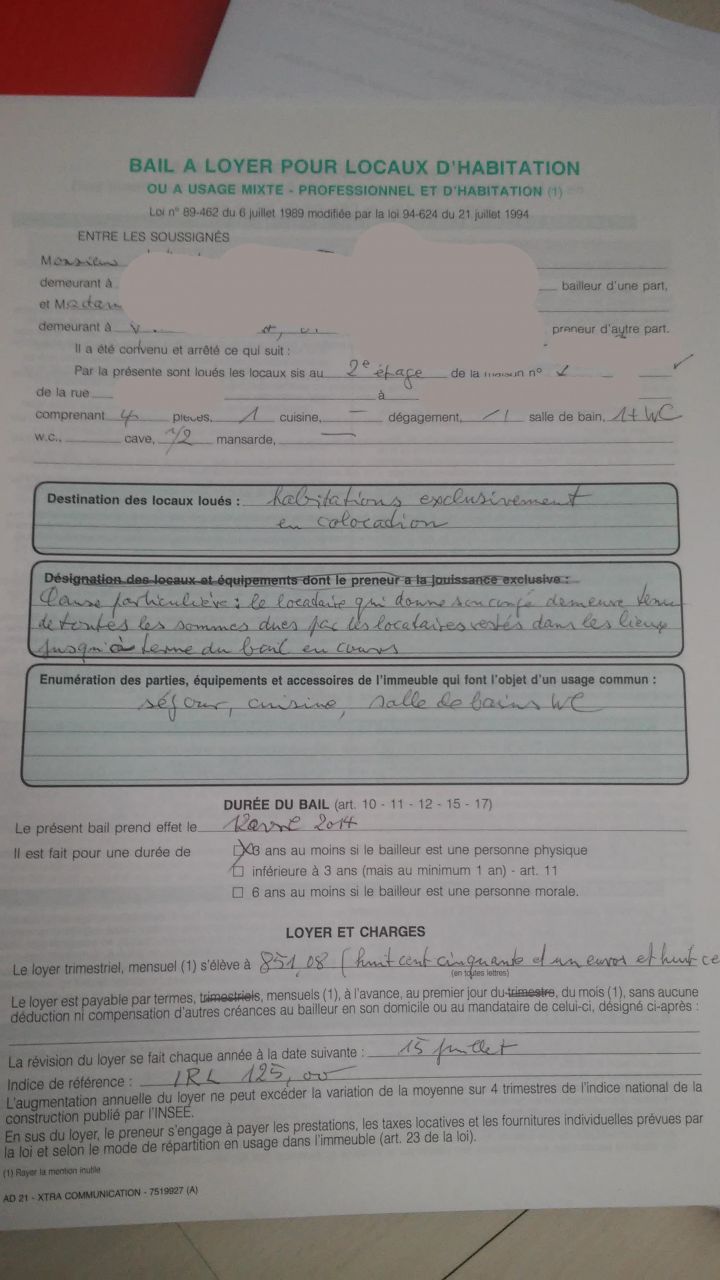 BAIL A LOYER POUR LOCAUX D'HABITATION
OU A USAGE MIXTE - PROFESSIONNEL ET D'HABITATION (1)
Loi n° 89-462 du 6 juillet 1989 modifiée par la loi 94-624 du 21 juillet 1994
ENTRE LES SOUSSIGNÉS
Monsieur
demeurant à bailleur d'une part,
et Madam
demeurant à preneur d'autre part.
Il a été convenu et arrêté ce qui suit :
Par la présente sont loués les locaux sis au 2e étage de la maison n°
de la rue à
comprenant 4 pièces, 1 cuisine, — dégagement, 1 salle de bain, 1+ WC
w.c., cave, 1/2 mansarde, —
Destination des locaux loués : habitations exclusivement
en colocation
Désignation des locaux et équipements dont le preneur a la jouissance exclusive :
Clause particulière : le locataire qui donne son congé demeure tenu
de toutes les sommes dues par les locataires restés dans les lieux
jusqu'à terme du bail en cours
Enumération des parties, équipements et accessoires de l'immeuble qui font l'objet d'un usage commun :
séjour, cuisine, salle de bains WC
DURÉE DU BAIL (art. 10 - 11 - 12 - 15 - 17)
Le présent bail prend effet le 2014
Il est fait pour une durée de ☒ 3 ans au moins si le bailleur est une personne physique
☐ inférieure à 3 ans (mais au minimum 1 an) - art. 11
☐ 6 ans au moins si le bailleur est une personne morale.
LOYER ET CHARGES
Le loyer trimestriel, mensuel (1) s'élève à 851,08 (huit cent cinquante et un euros et huit ce
(en toutes lettres)
Le loyer est payable par termes, trimestriels, mensuels (1), à l'avance, au premier jour du trimestre, du mois (1), sans aucune
déduction ni compensation d'autres créances au bailleur en son domicile ou au mandataire de celui-ci, désigné ci-après :
La révision du loyer se fait chaque année à la date suivante : 15 juillet
Indice de référence : IRL 125,00
L'augmentation annuelle du loyer ne peut excéder la variation de la moyenne sur 4 trimestres de l'indice national de la
construction publié par l'INSEE.
En sus du loyer, le preneur s'engage à payer les prestations, les taxes locatives et les fournitures individuelles prévues par
la loi et selon le mode de répartition en usage dans l'immeuble (art. 23 de la loi).
(1) Rayer la mention inutile
AD 21 - XTRA COMMUNICATION - 7519927 (A)